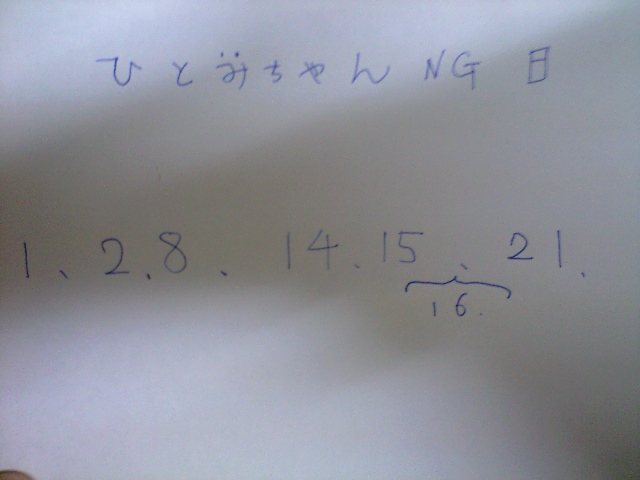 ひとみちゃん NG 日
1、2.8、14.15、21.
16.